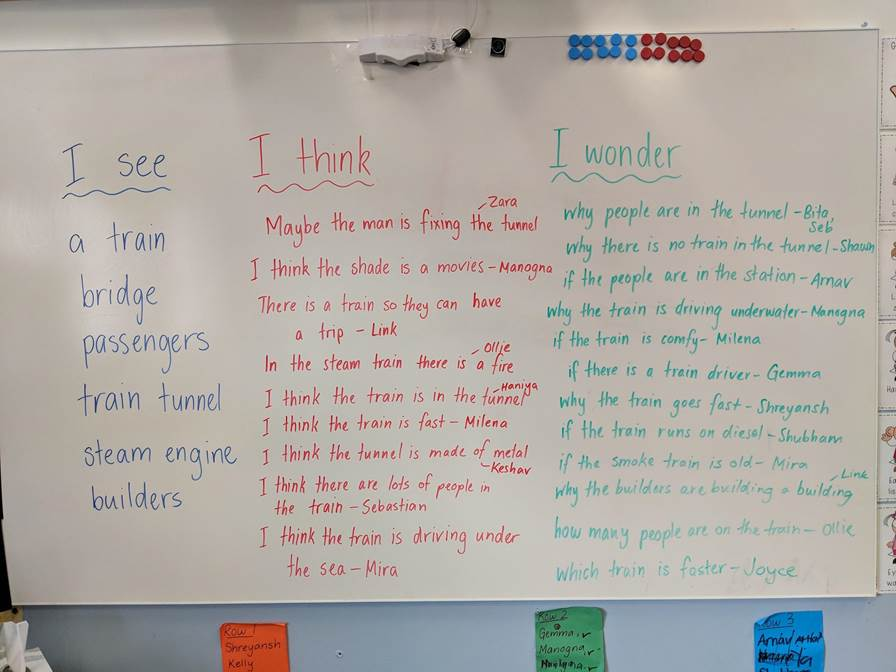 I see
a train
bridge
passengers
train tunnel
steam engine
builders
I think
Zara
Maybe the man is fixing the tunnel
I think the shade is a movies - Manogna
There is a train so they can have
a trip - Link
Ollie
In the steam train there is a fire
Haniya
I think the train is in the tunnel
I think the train is fast - Milena
I think the tunnel is made of metal
- Keshav
I think there are lots of people in
the train - Sebastian
I think the train is driving under
the sea - Mira
I wonder
why people are in the tunnel - Bita,
Seb
why there is no train in the tunnel - Shawn
if the people are in the station - Arnav
why the train is driving underwater - Manogna
if the train is comfy - Milena
if there is a train driver - Gemma
why the train goes fast - Shreyansh
if the train runs on diesel - Shubham
if the smoke train is old - Mira
Link
why the builders are building a building
how many people are on the train - Ollie
which train is faster - Joyce
Row 1
Shreyansh
Kelly
Row 2
Gemma
Manogna
Row 3
Arnav